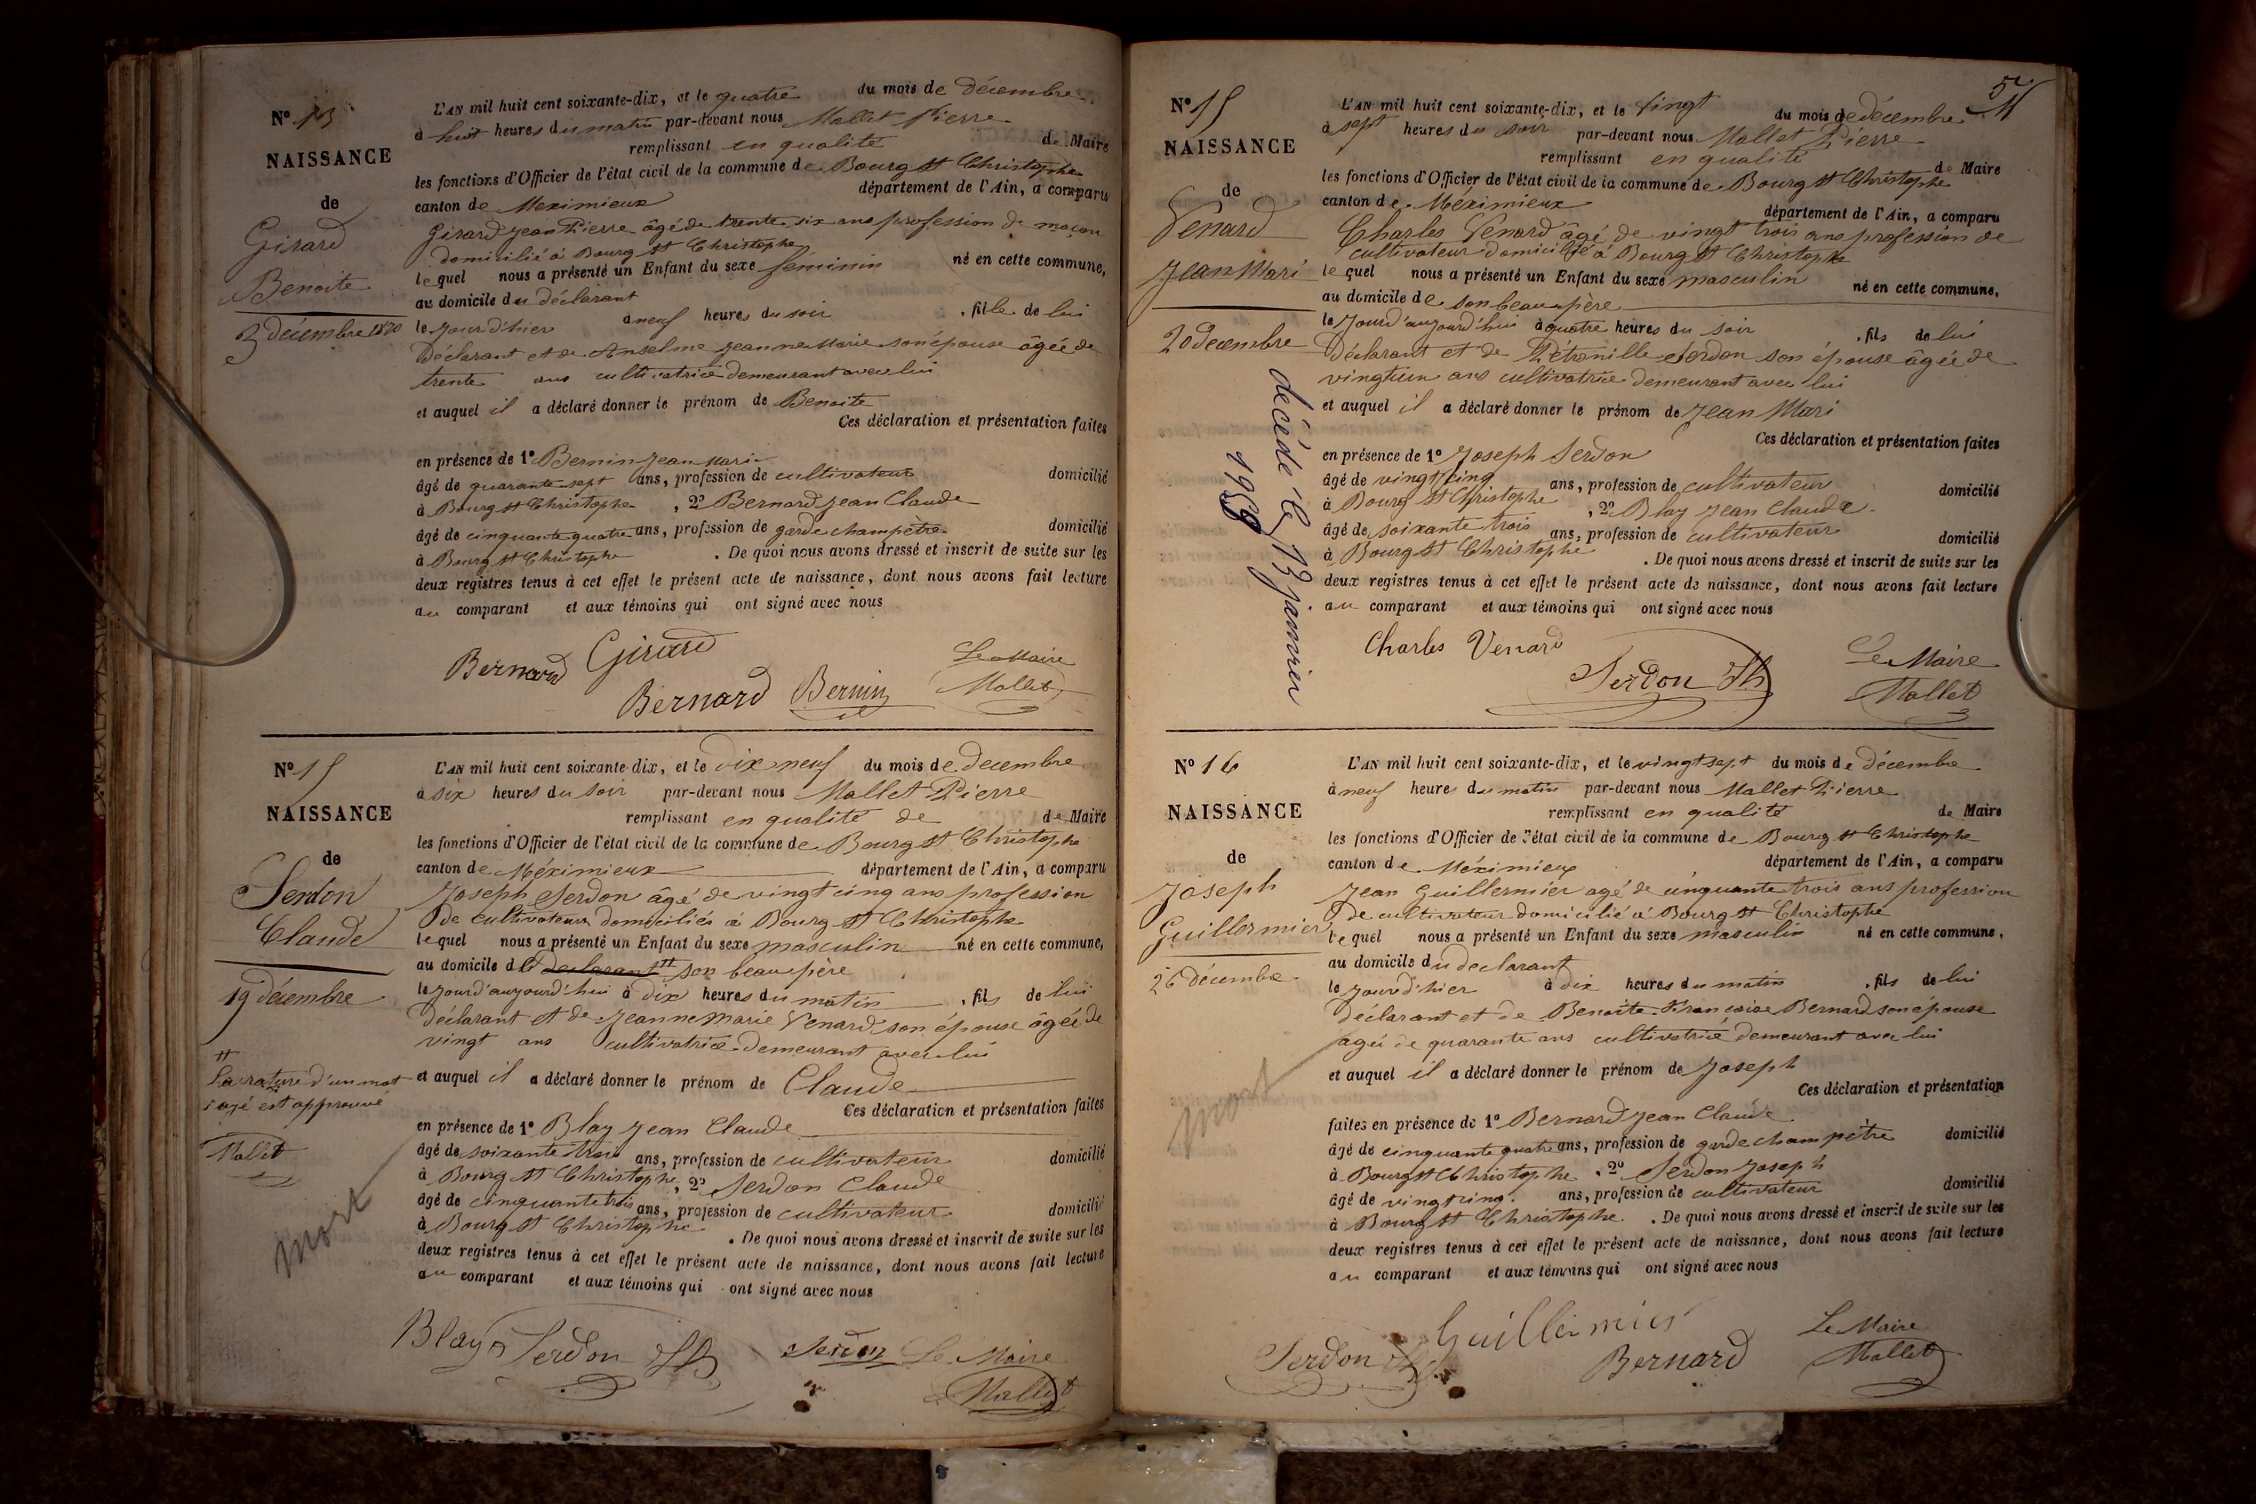 N° 13
NAISSANCE
de
Girard
Benoite
3 décembre 1870
L'AN mil huit cent soixante-dix, et le quatre du mois de décembre
à huit heures du matin par-devant nous Mallet Pierre
remplissant en qualité de Maire
les fonctions d'Officier de l'état civil de la commune de Bourg St Christophe
canton de Meximieux département de l'Ain, a comparu
Girard Jean Pierre âgé de trente six ans profession de maçon
domicilié à Bourg St Christophe
lequel nous a présenté un Enfant du sexe féminin né en cette commune,
au domicile du déclarant
le jour d'hier à neuf heures du soir , fille de lui
déclarant et de Anselme Jeanne Marie son épouse âgée de
trente ans cultivatrice demeurant avec lui
et auquel il a déclaré donner le prénom de Benoite
Ces déclaration et présentation faites
en présence de 1° Bernin Jean Marie
âgé de quarante sept ans, profession de cultivateur domicilié
à Bourg St Christophe , 2° Bernard Jean Claude
âgé de cinquante quatre ans, profession de garde champêtre domicilié
à Bourg St Christophe . De quoi nous avons dressé et inscrit de suite sur les
deux registres tenus à cet effet le présent acte de naissance, dont nous avons fait lecture
au comparant et aux témoins qui ont signé avec nous
Bernard Girard Le Maire
Bernard Bernin Mallet
N° 15
NAISSANCE
de
Serdon
Claude
19 décembre
La rature d'un mot
rayé est approuvé
Mallet
mort
L'AN mil huit cent soixante-dix, et le dix neuf du mois de décembre
à six heures du soir par-devant nous Mallet Pierre
remplissant en qualité de de Maire
les fonctions d'Officier de l'état civil de la commune de Bourg St Christophe
canton de Méximieux département de l'Ain, a comparu
Joseph Serdon âgé de vingt cinq ans profession
de cultivateur domiciliés à Bourg St Christophe
lequel nous a présenté un Enfant du sexe masculin né en cette commune,
au domicile de declarant son beau père
le jour d'aujourd'hui à dix heures du matin , fils de lui
déclarant et de Jeanne Marie Venard son épouse âgée de
vingt ans cultivatrice demeurant avec lui
et auquel il a déclaré donner le prénom de Claude
Ces déclaration et présentation faites
en présence de 1° Blay Jean Claude
âgé de soixante trois ans, profession de cultivateur domicilié
à Bourg St Christophe , 2° Serdon Claude
âgé de cinquante trois ans, profession de cultivateur domicilié
à Bourg St Christophe . De quoi nous avons dressé et inscrit de suite sur les
deux registres tenus à cet effet le présent acte de naissance, dont nous avons fait lecture
au comparant et aux témoins qui ont signé avec nous
Blay Serdon Serdon Le Maire
Mallet
N° 15
NAISSANCE
de
Venard
Jean Mari
20 decembre
décédé le 13 janvier
L'AN mil huit cent soixante-dix, et le vingt du mois de décembre
à sept heures du soir par-devant nous Mallet Pierre
remplissant en qualité de Maire
les fonctions d'Officier de l'état civil de la commune de Bourg St Christophe
canton de Méximieux département de l'Ain, a comparu
Charles Venard âgé de vingt trois ans profession de
cultivateur domicilié à Bourg St Christophe
lequel nous a présenté un Enfant du sexe masculin né en cette commune,
au domicile de son beau père
le jour d'aujourd'hui à quatre heures du soir , fils de lui
déclarant et de Pétronille Serdon son épouse âgée de
vingt un ans cultivatrice demeurant avec lui
et auquel il a déclaré donner le prénom de Jean Mari
Ces déclaration et présentation faites
en présence de 1° Joseph Serdon
âgé de vingt cinq ans, profession de cultivateur domicilié
à Bourg St Christophe , 2° Blay Jean Claude
âgé de soixante trois ans, profession de cultivateur domicilié
à Bourg St Christophe . De quoi nous avons dressé et inscrit de suite sur les
deux registres tenus à cet effet le présent acte de naissance, dont nous avons fait lecture
au comparant et aux témoins qui ont signé avec nous
Charles Venard Le Maire
Serdon Jh Mallet
N° 16
NAISSANCE
de
Joseph
Guillermier
26 décembre
mort
L'AN mil huit cent soixante-dix, et le vingt sept du mois de décembre
à neuf heures du matin par-devant nous Mallet Pierre
remplissant en qualité de Maire
les fonctions d'Officier de l'état civil de la commune de Bourg St Christophe
canton de Méximieux département de l'Ain, a comparu
Jean Guillermier agé de cinquante trois ans profession
de cultivateur domicilié à Bourg St Christophe
lequel nous a présenté un Enfant du sexe masculin né en cette commune,
au domicile du declarant
le jour d'hier à dix heures du matin , fils de lui
déclarant et de Benoite Françoise Bernard son épouse
agée de quarante ans cultivatrice demeurant avec lui
et auquel il a déclaré donner le prénom de Joseph
Ces déclaration et présentation
faites en présence de 1° Bernard Jean Claude
âgé de cinquante quatre ans, profession de garde champêtre domicilié
à Bourg St Christophe , 2° Serdon Joseph
âgé de vingt cinq ans, profession de cultivateur domicilié
à Bourg St Christophe . De quoi nous avons dressé et inscrit de suite sur les
deux registres tenus à cet effet le présent acte de naissance, dont nous avons fait lecture
au comparant et aux témoins qui ont signé avec nous
Guillermier Le Maire
Serdon Bernard Mallet